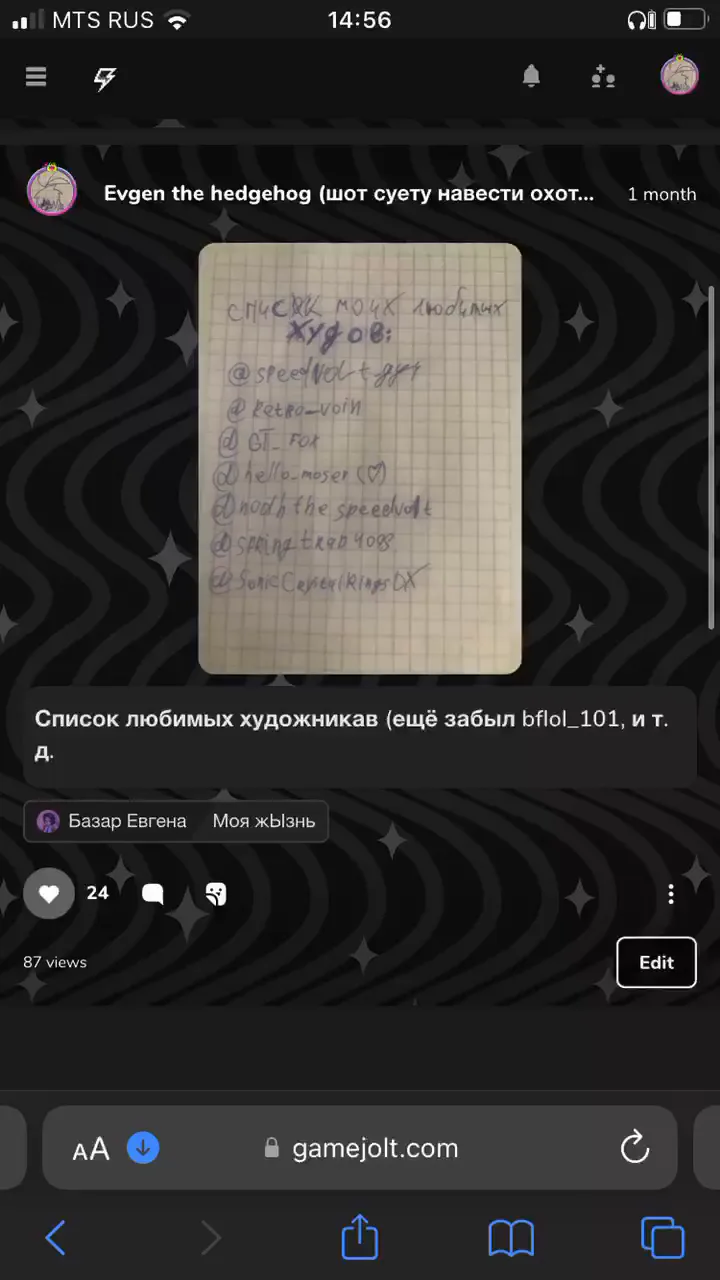 MTS RUS
14:56
Evgen the hedgehog (шот суету навести охот...
1 month
список моих любимых
худов:
@speedvolt
@Retro_voin
@GT_Fox
@hello_moser (♡)
@nodh the speedvolt
@springtrap4088
Список любимых художникав (ещё забыл bflol_101, и т.
д.
Базар Евгена
Моя жЫзнь
24
87 views
Edit
AA
gamejolt.com